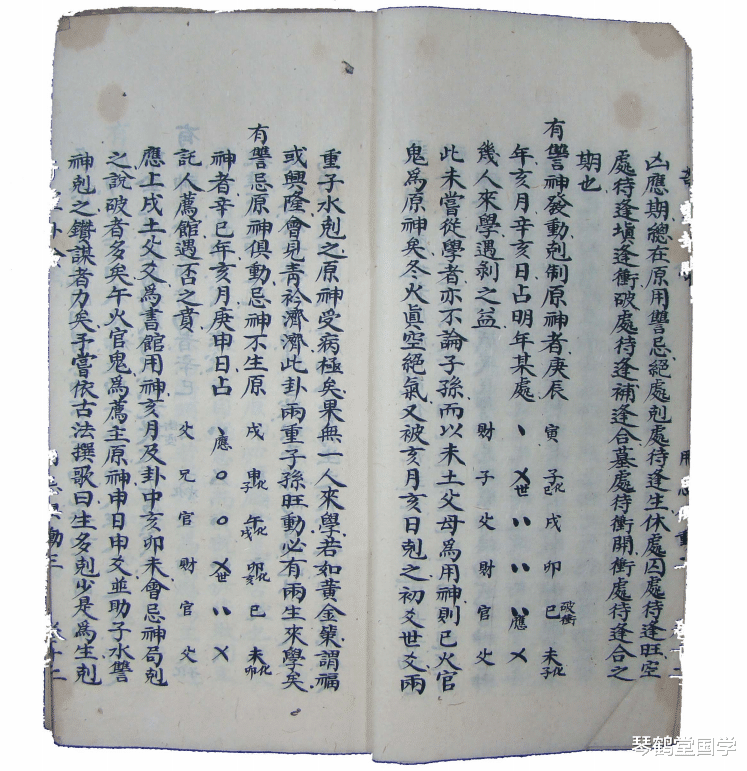 凶應期總在原用讐忌絕處剋處待逢生休處囚處待逢旺空
處待逢塡逢衝破處待逢補逢合墓處待衝開衝處待逢合之
期也
有讐神發動剋制原神者庚辰 寅 子化巳 戌 卯 巳破衝 未化子
年亥月辛亥日占明年某處 、 乂世 、、 、、 、、應 乂
幾人來學遇剥之益 財 子 父 財 官 父
此未嘗從學者亦不論子孫而以未土父母爲用神則巳火官
鬼爲原神矣冬火眞空絕氣又被亥月亥日剋之初爻世爻兩
重子水剋之原神受病極矣果無一人來學若如黃金䇿謂福
或興隆會見青衿濟濟此卦兩重子孫旺動必有兩生來學矣
有讐忌原神俱動忌神不生原 戌 申化子 午化戌 卯化亥 巳 未化卯
神者辛巳年亥月庚申日占 、應 〇 〇 乂世 、、 乂
託人薦館遇否之賁 父 兄 官 財 官 父
應上戌土父爻爲書館用神亥月及卦中亥卯未會忌神局剋
之說破者多矣午火官鬼爲薦主原神申日申爻並助子水讐
神剋之鑽謀者力矣予嘗依古法撰歌曰生多剋少是爲生剋
琴鹤堂国学